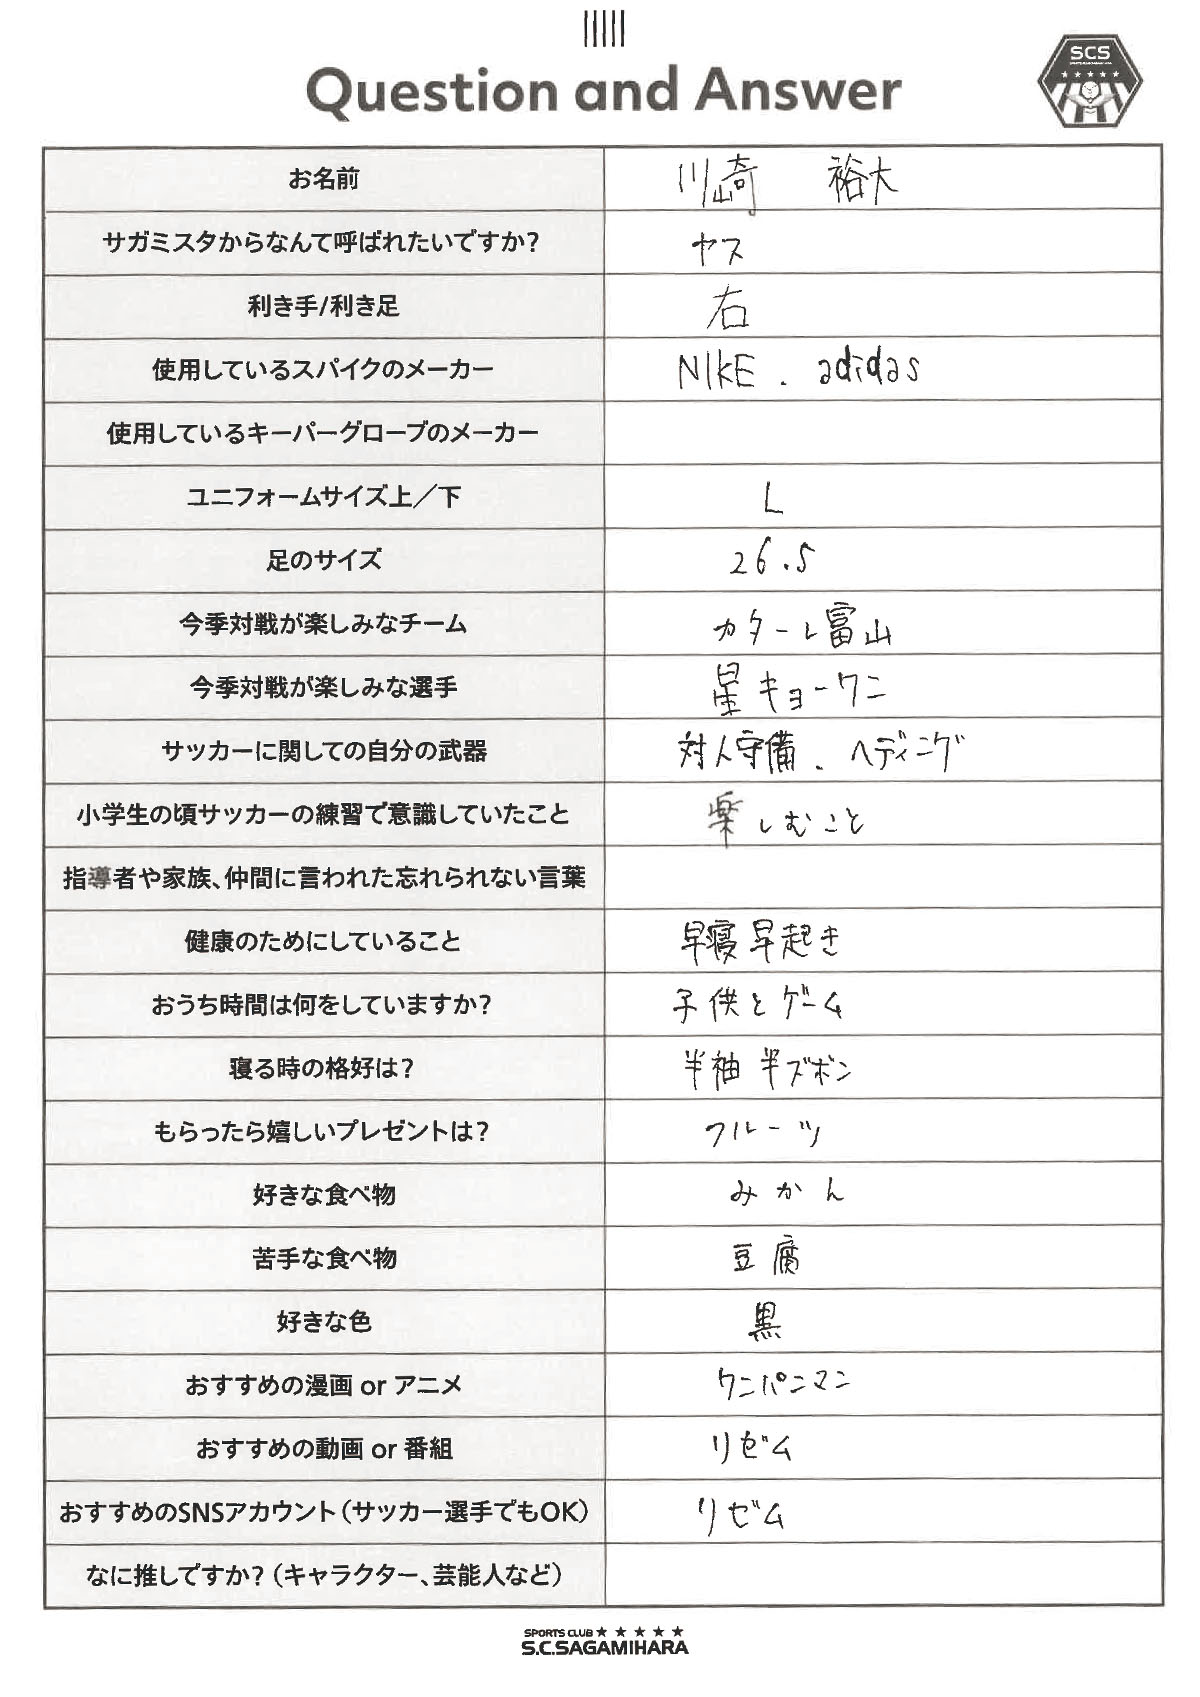 Question and Answer
SCS
お名前 川崎 裕大
サガミスタからなんて呼ばれたいですか? ヤス
利き手/利き足 右
使用しているスパイクのメーカー NIKE . adidas
使用しているキーパーグローブのメーカー
ユニフォームサイズ上／下 L
足のサイズ 26.5
今季対戦が楽しみなチーム カターレ富山
今季対戦が楽しみな選手 星キョーワン
サッカーに関しての自分の武器 対人守備 . ヘディング
小学生の頃サッカーの練習で意識していたこと 楽しむこと
指導者や家族、仲間に言われた忘れられない言葉
健康のためにしていること 早寝早起き
おうち時間は何をしていますか? 子供とゲーム
寝る時の格好は? 半袖 半ズボン
もらったら嬉しいプレゼントは? フルーツ
好きな食べ物 みかん
苦手な食べ物 豆腐
好きな色 黒
おすすめの漫画 or アニメ ワンパンマン
おすすめの動画 or 番組 リゼム
おすすめのSNSアカウント（サッカー選手でもOK） リゼム
なに推しですか?（キャラクター、芸能人など）
SPORTS CLUB ★ ★ ★ ★ ★
S.C.SAGAMIHARA